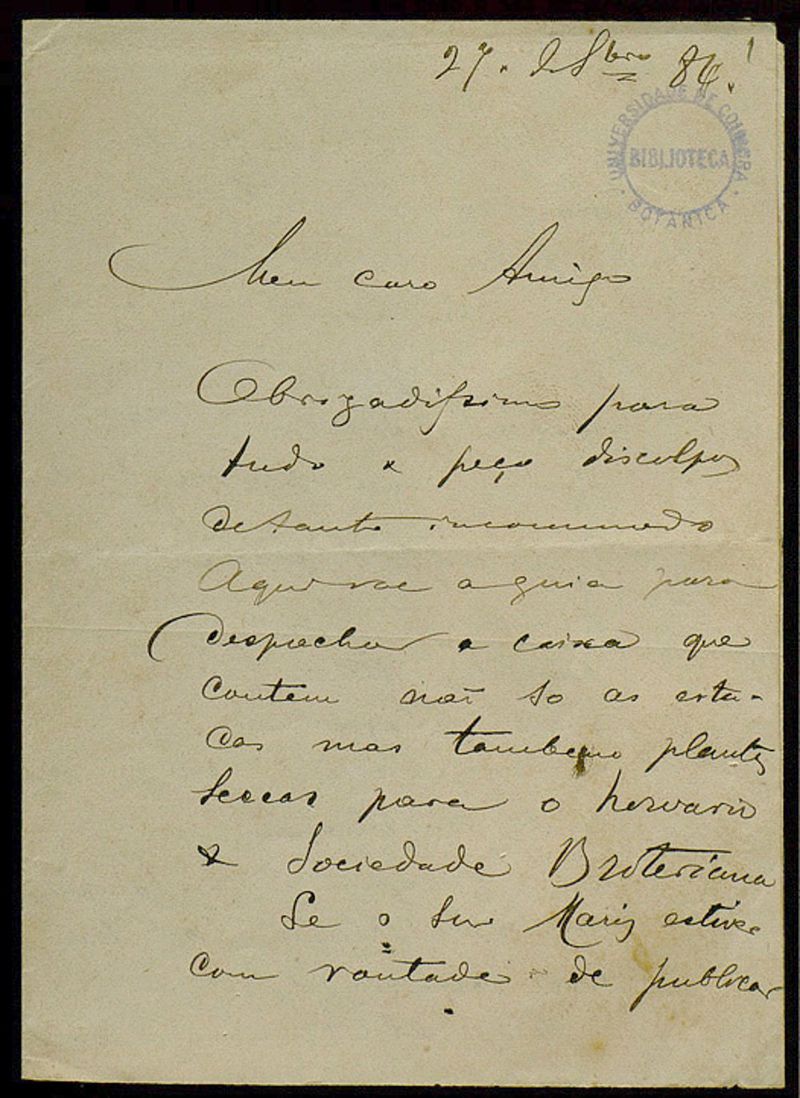 27. de 8bro 84.
1
UNIVERSIDADE DE COIMBRA
BIBLIOTECA
BOTANICA
Meu caro Amigo
Obrigadissimo para
tudo e peço disculpas
de tanto incommodo
Aqui vae a guia para
despachar a caixa que
contem não so as esta-
cas mas tambem plantas
seccas para o hervario
e Sociedade Broteriana
Se o Snr Mariz estive
com vontade de publicar